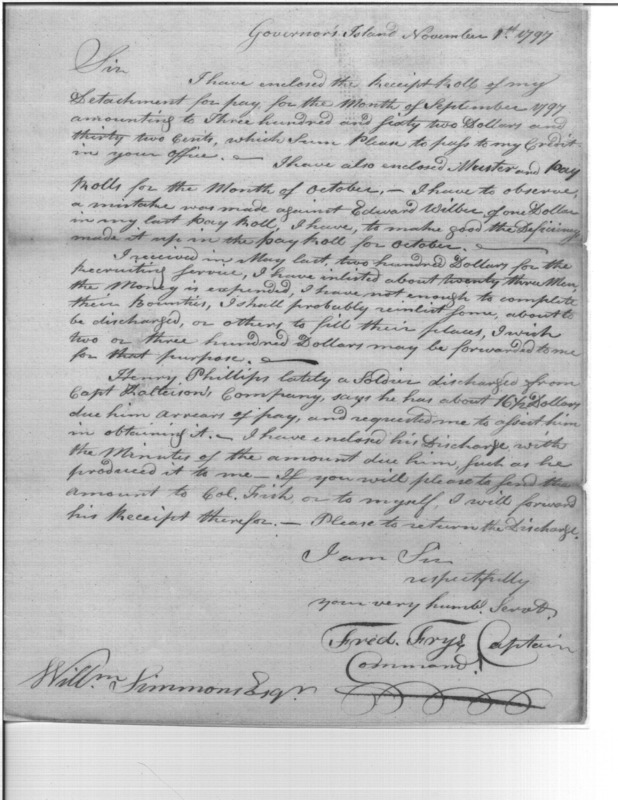 Governor's Island November 1st 1797
Sir
I have enclosed the Receipt Roll of my
Detachment for pay, for the Month of September 1797
amounting to Three hundred and sixty two Dollars and
thirty two Cents, which Sum Please to pass to my Credit
in your Office. — I have also enclosed Muster and Pay
Rolls for the Month of October, — I have to observe,
a mistake was made against Edward Wilbee of one Dollar
in my last Pay Roll, I have, to make good the Deficiency
made it up in the Pay Roll for October. —
I received in May last, two hundred Dollars for the
Recruiting Service, I have inlisted about twenty three Men,
the Money is expended, I have not enough to complete
their Bounties, I shall probably reinlist some, about to
be discharged, or others to fill their places, I wish
two or three hundred Dollars may be forwarded to me
for that purpose. —
Henry Phillips lately a Soldier discharged from
Capt Company, says he has about 16½ Dollars
due him arrears of pay, and requested me to assist him
in obtaining it. — I have enclosed his Discharge with
the Minutes of the amount due him, such as he
produced it to me — If you will please to send the
amount to Col. Fish, or to myself, I will forward
his Receipt therefor. — Please to return the Discharge.
I am Sir
respectfully
your very humb. Servt.
Fred. Frye Captain
Command.
Willm Simmons Esqr.